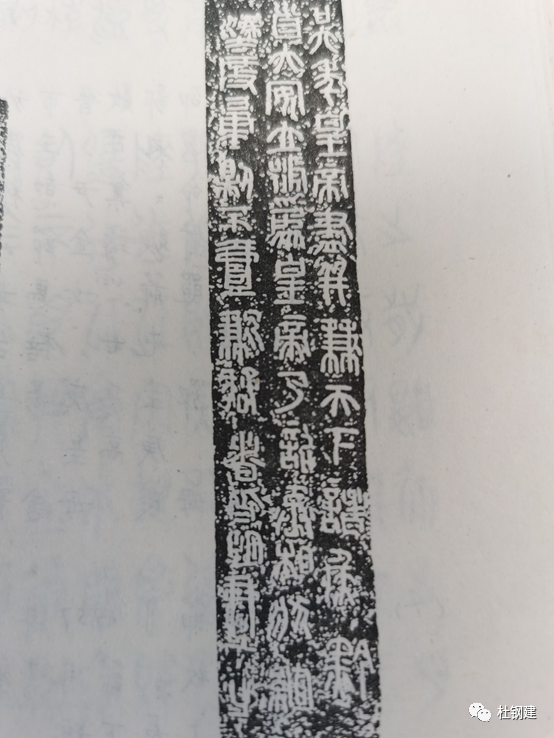 六年皇帝盡并兼天下諸侯黔
首大安立號為皇帝乃詔丞相狀綰
灋度量則不壹歉疑者皆明壹之
杜钢建